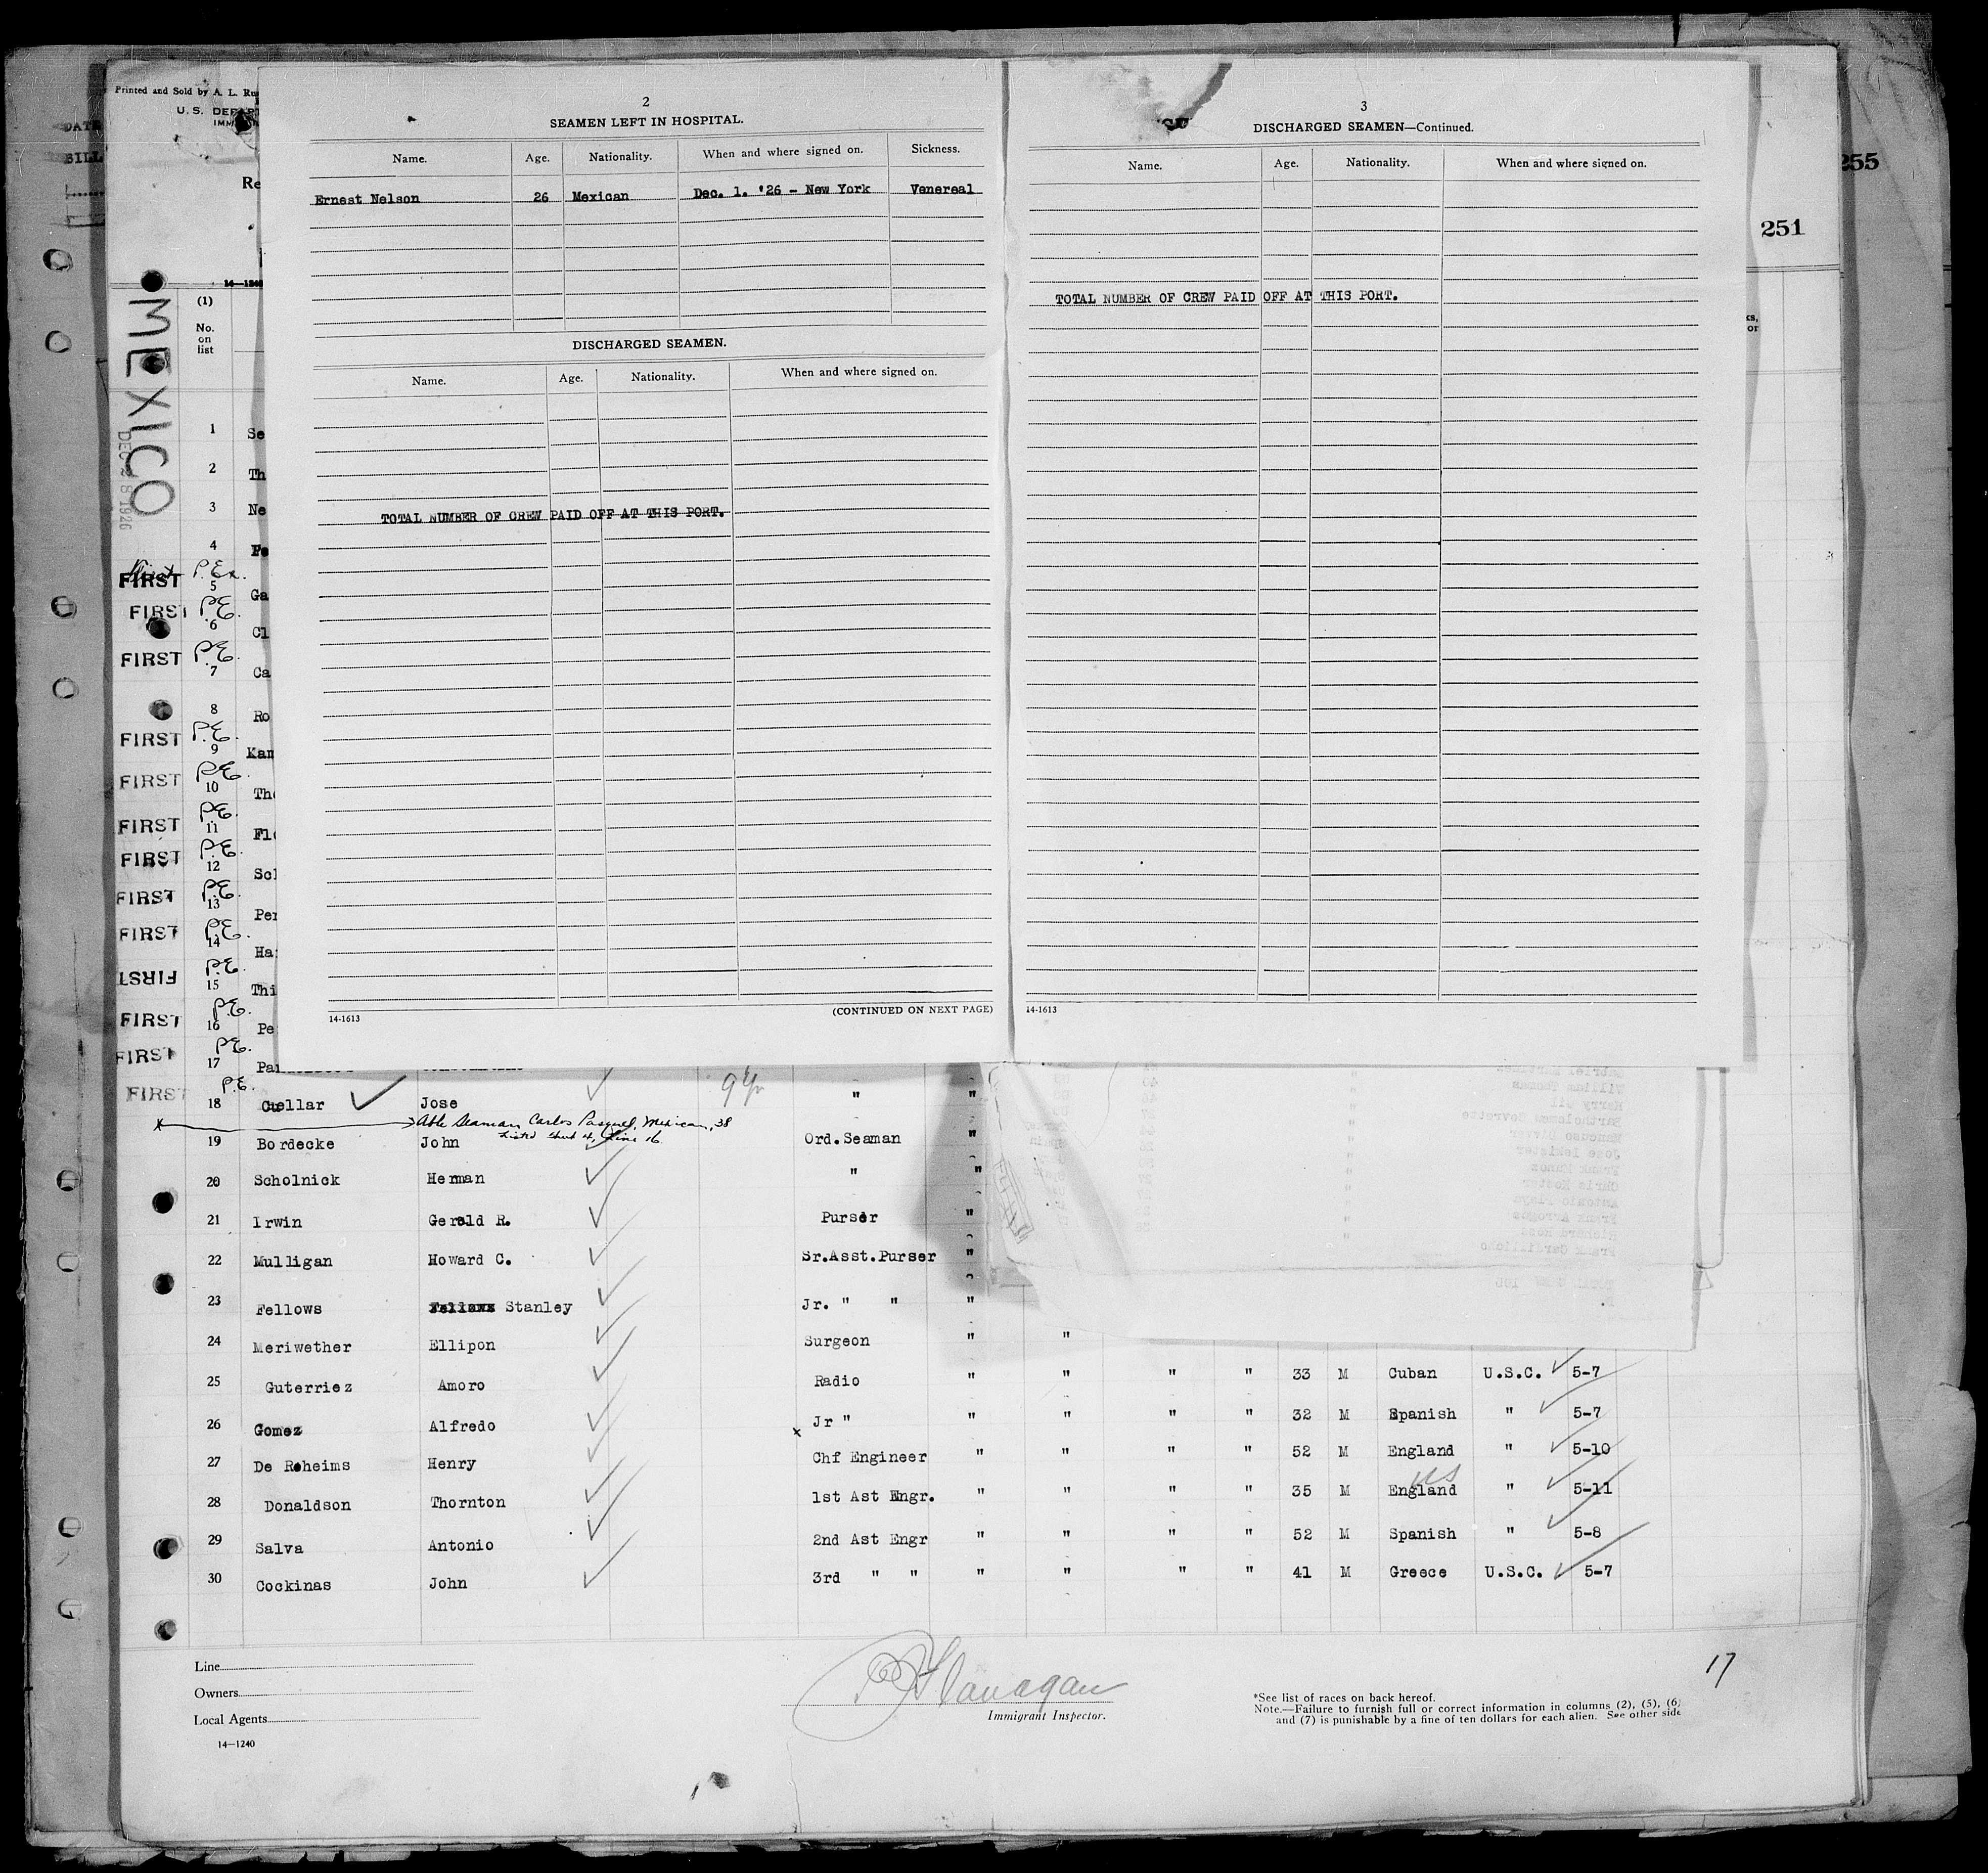 2
SEAMEN LEFT IN HOSPITAL.
Name. Age. Nationality. When and where signed on. Sickness.
Ernest Nelson 26 Mexican Dec. 1. '26 - New York Venereal
DISCHARGED SEAMEN.
Name. Age. Nationality. When and where signed on.
TOTAL NUMBER OF CREW PAID OFF AT THIS PORT.
14-1613 (CONTINUED ON NEXT PAGE)
3
DISCHARGED SEAMEN—Continued.
Name. Age. Nationality. When and where signed on.
TOTAL NUMBER OF CREW PAID OFF AT THIS PORT.
14-1613
255
251
Printed and Sold by A. L.
U. S.
MEXICO
DEC 28 1926
(1)
No.
on
list
1 Se
2 Th
3 Ne
4 Fe
FIRST P.E. 5 Ga
FIRST P.E. 6 Cl
FIRST P.E. 7 Ca
8 Ro
FIRST P.E. 9 Kam
FIRST P.E. 10 The
FIRST P.E. 11 Flo
FIRST P.E. 12 Scl
FIRST P.E. 13 Per
FIRST P.E. 14 Ha
FIRST P.E. 15 Thi
FIRST P.E. 16 Pe
FIRST P.E. 17 Pa
FIRST P.E. 18 Cuellar Jose " "
Able Seaman Carlos Pasquel, Mexican, 38
Listed sheet 4, line 16
19 Bordecke John Ord.Seaman
20 Scholnick Herman " "
21 Irwin Gerald R. Purser "
22 Mulligan Howard C. Sr.Asst.Purser "
23 Fellows Stanley Jr. " " "
24 Meriwether Ellipon Surgeon " "
25 Guterriez Amoro Radio " " " " 33 M Cuban U.S.C. 5-7
26 Gomez Alfredo Jr " " " " " 32 M Spanish " 5-7
27 De Roheims Henry x Chf Engineer " " " " 52 M England " 5-10
28 Donaldson Thornton 1st Ast Engr. " " " " 35 M England US " 5-11
29 Salva Antonio 2nd Ast Engr " " " " 52 M Spanish " 5-8
30 Cockinas John 3rd " " " " " " 41 M Greece U.S.C. 5-7
17
Line
Owners
Local Agents
14—1240
Flanagan
Immigrant Inspector.
*See list of races on back hereof.
Note.—Failure to furnish full or correct information in columns (2), (5), (6)
and (7) is punishable by a fine of ten dollars for each alien. See other side